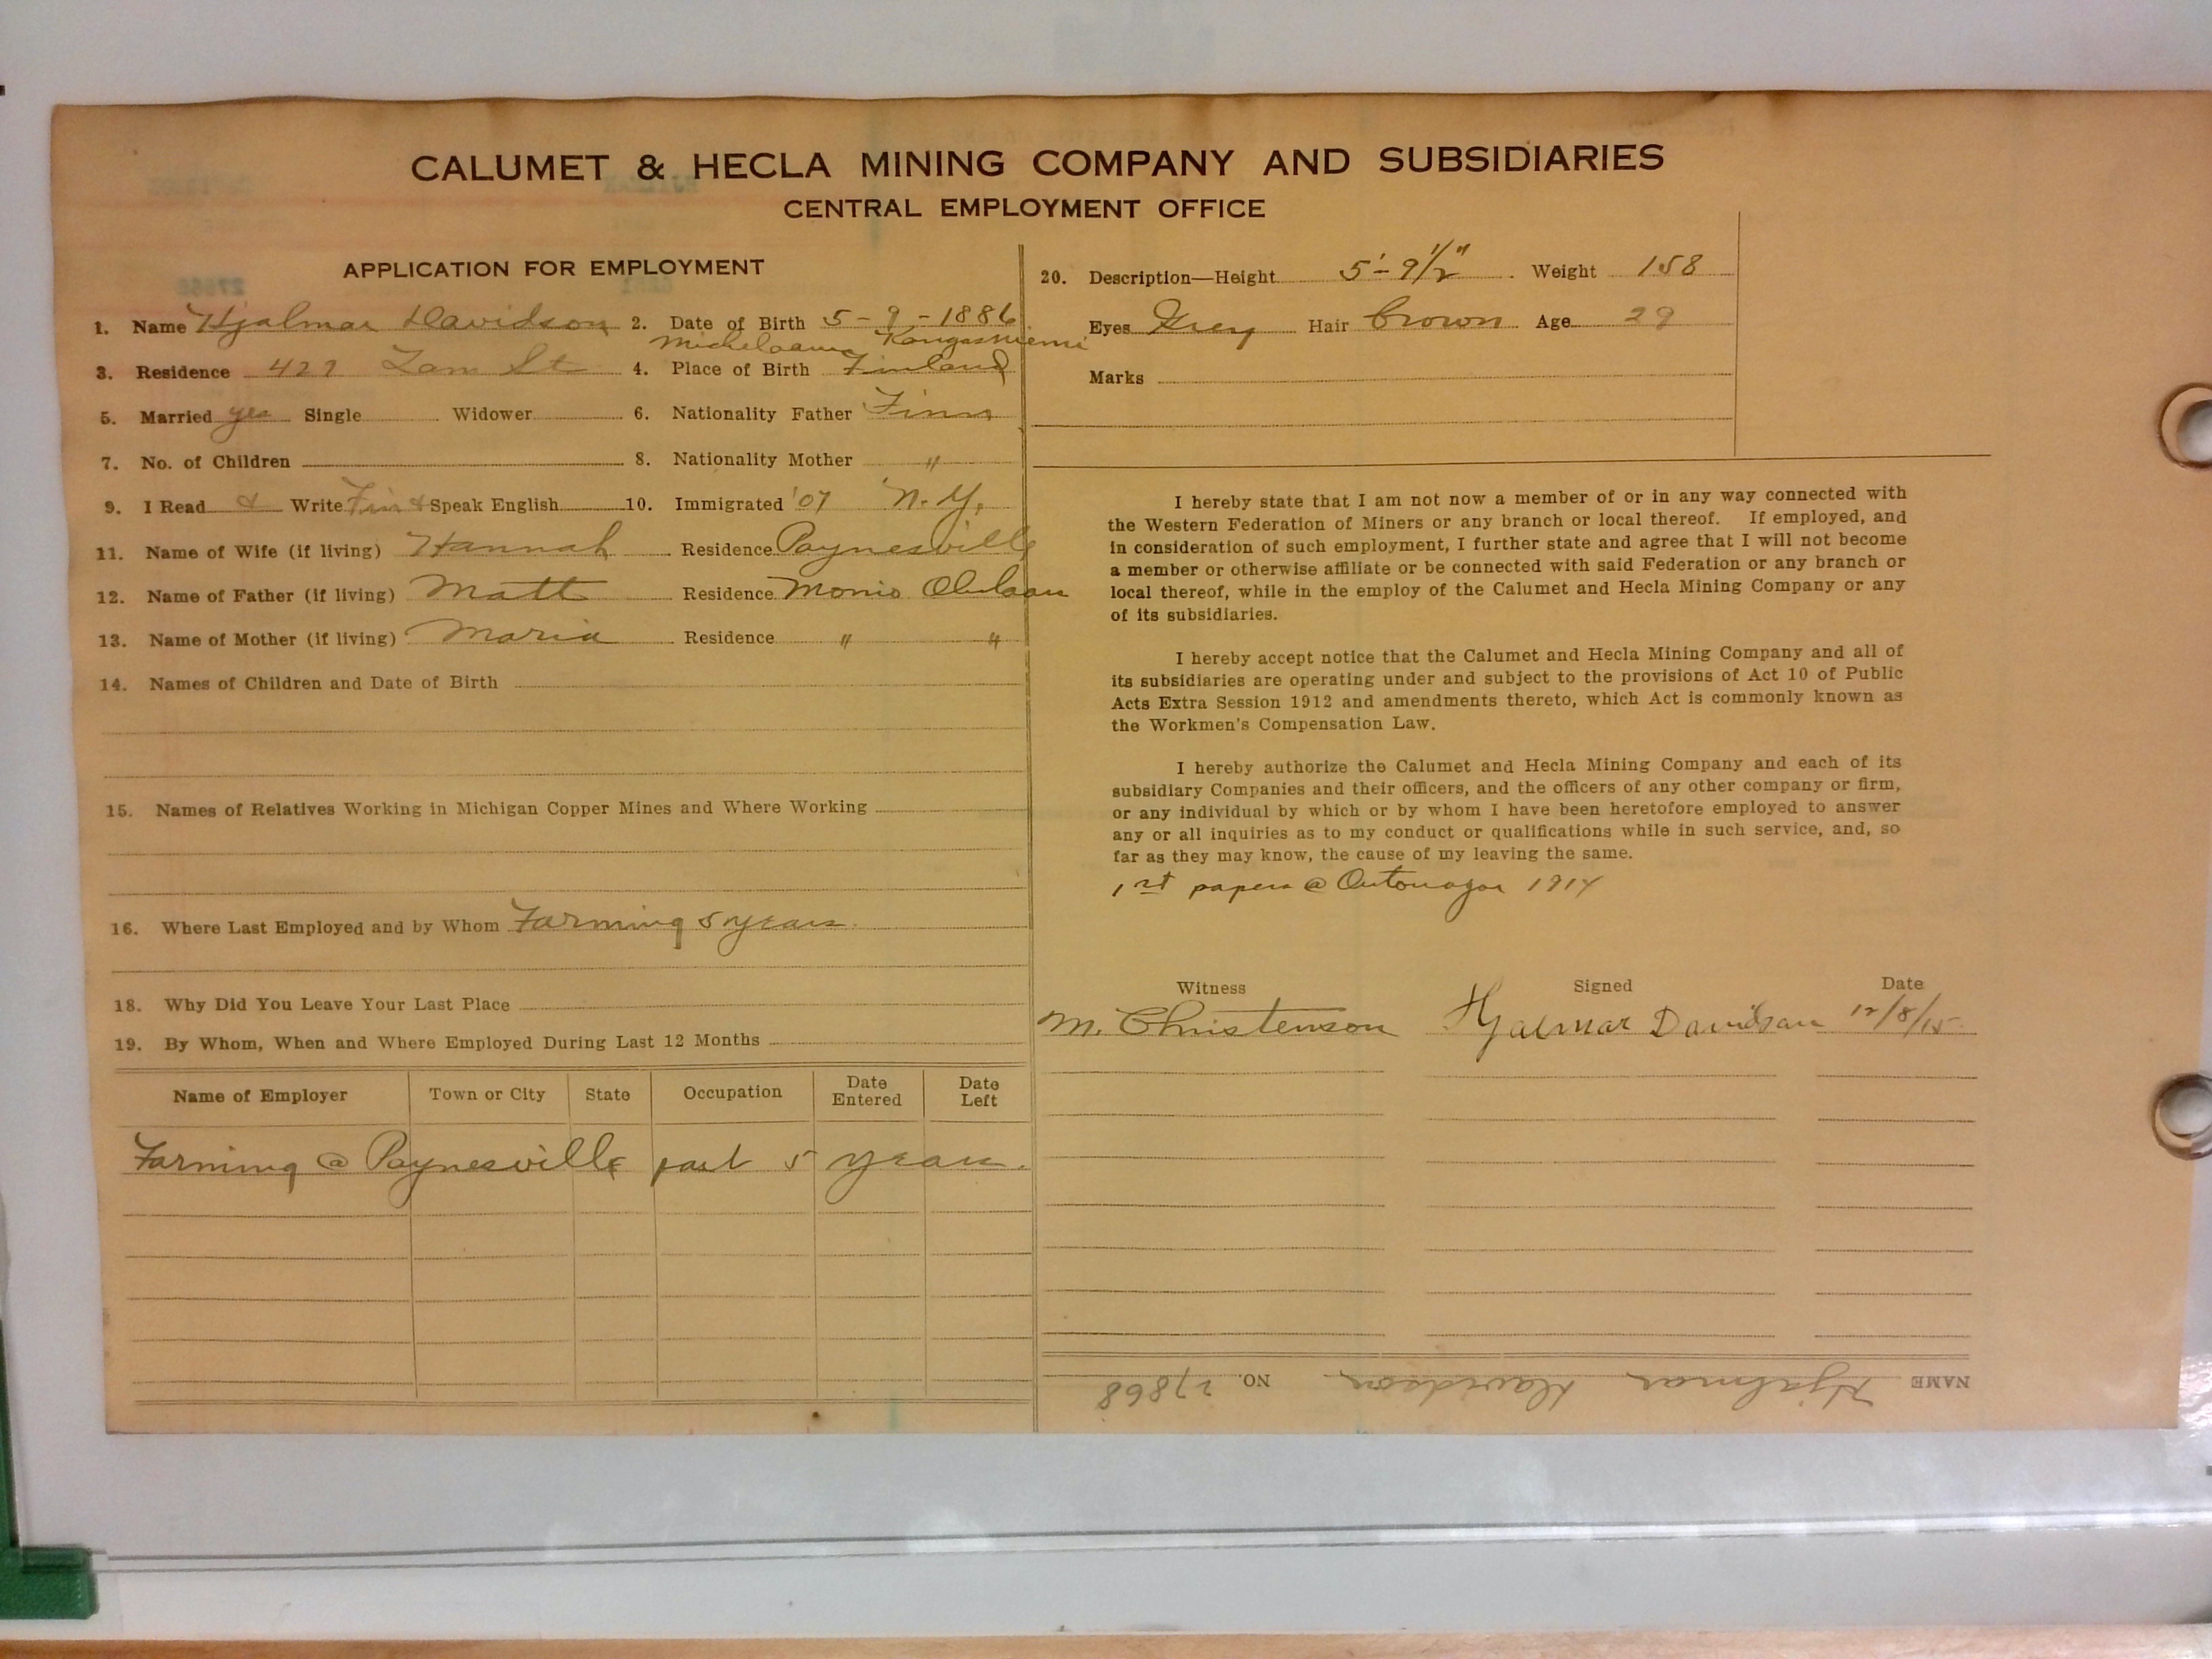 CALUMET & HECLA MINING COMPANY AND SUBSIDIARIES
CENTRAL EMPLOYMENT OFFICE
APPLICATION FOR EMPLOYMENT
1. Name Hjalmar Davidson 2. Date of Birth 5-9-1886
Kangasniemi
3. Residence 427 St 4. Place of Birth Finland
5. Married yes Single Widower 6. Nationality Father Finn
7. No. of Children 8. Nationality Mother "
9. I Read & Write Fin & Speak English 10. Immigrated '07 N. Y.
11. Name of Wife (if living) Hannah Residence Paynesville
12. Name of Father (if living) Matt Residence
13. Name of Mother (if living) Maria Residence " "
14. Names of Children and Date of Birth
15. Names of Relatives Working in Michigan Copper Mines and Where Working
16. Where Last Employed and by Whom Farming 5 years.
18. Why Did You Leave Your Last Place
19. By Whom, When and Where Employed During Last 12 Months
Name of Employer Town or City State Occupation Date Entered Date Left
Farming @ Paynesville past 5 years.
20. Description—Height 5'-9 1/2" Weight 158
Eyes Grey Hair Brown Age 29
Marks
I hereby state that I am not now a member of or in any way connected with
the Western Federation of Miners or any branch or local thereof. If employed, and
in consideration of such employment, I further state and agree that I will not become
a member or otherwise affiliate or be connected with said Federation or any branch or
local thereof, while in the employ of the Calumet and Hecla Mining Company or any
of its subsidiaries.
I hereby accept notice that the Calumet and Hecla Mining Company and all of
its subsidiaries are operating under and subject to the provisions of Act 10 of Public
Acts Extra Session 1912 and amendments thereto, which Act is commonly known as
the Workmen's Compensation Law.
I hereby authorize the Calumet and Hecla Mining Company and each of its
subsidiary Companies and their officers, and the officers of any other company or firm,
or any individual by which or by whom I have been heretofore employed to answer
any or all inquiries as to my conduct or qualifications while in such service, and, so
far as they may know, the cause of my leaving the same.
1st papers @ Ontonagon 1914
Witness Signed Date
M. Christenson Hjalmar Davidson 12/8/15
NAME Hjalmar Davidson NO. 27868